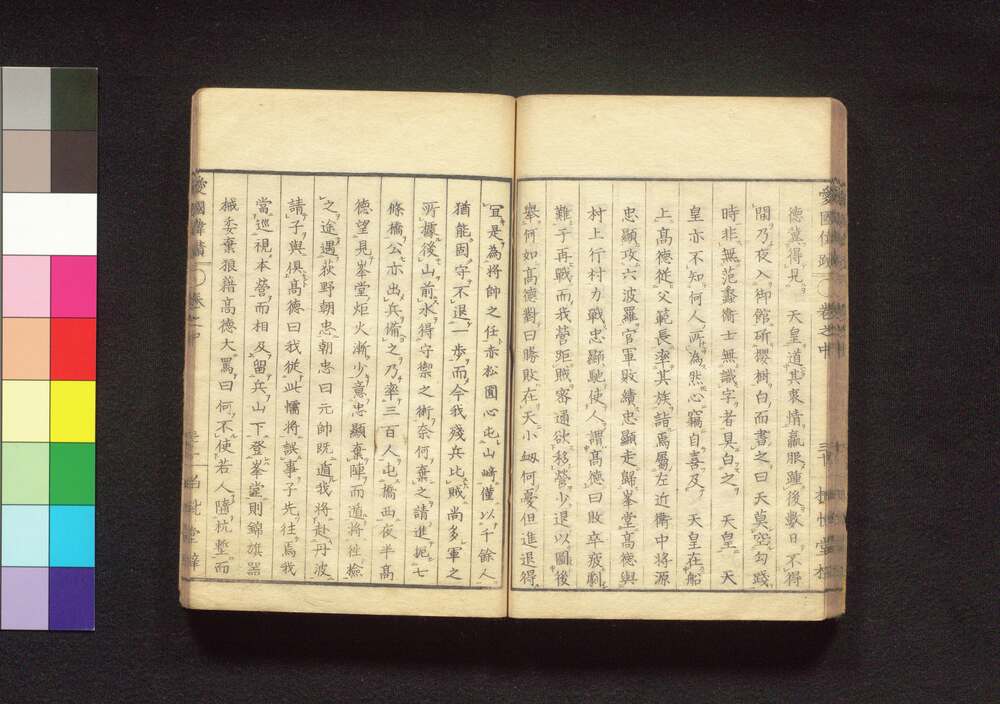 德冀得見天皇道其衷情羸服踵後數日不得
間乃夜入御館斫櫻樹白而書之曰天莫空勾踐
時非無范蠡衛士無識字者具白之天皇天
皇亦不知何人所為然心竊自喜及天皇在船
上高德從父範長率其族詣焉屬左近衛中將源
忠顯攻六波羅官軍敗績忠顯走歸峯堂高德與
村上行村力戰忠顯馳使人謂高德曰敗卒疲劇
難于再戰而我營距賊寨通欲移營少退以圖後
舉何如高德對曰勝敗在天小衂何憂但進退得
宜是為將帥之任赤松圓心屯山崎僅以千餘人
猶能固守不退一步而今我殘兵比賊尚多軍之
所據後山前水得守禦之術奈何棄之請進扼七
條橋公亦出兵備之乃率三百人屯橋西夜半高
德望見峯堂炬火漸少意忠顯棄陣而遁將往檢
之途遇荻野朝忠朝忠曰元帥既遁我將赴丹波
請子與俱高德曰我從此懦將誤事子先往焉我
當巡視本營而相及留兵山下登峯堂則錦旗器
械委棄狼藉高德大罵曰何不使若人墮坑塹而